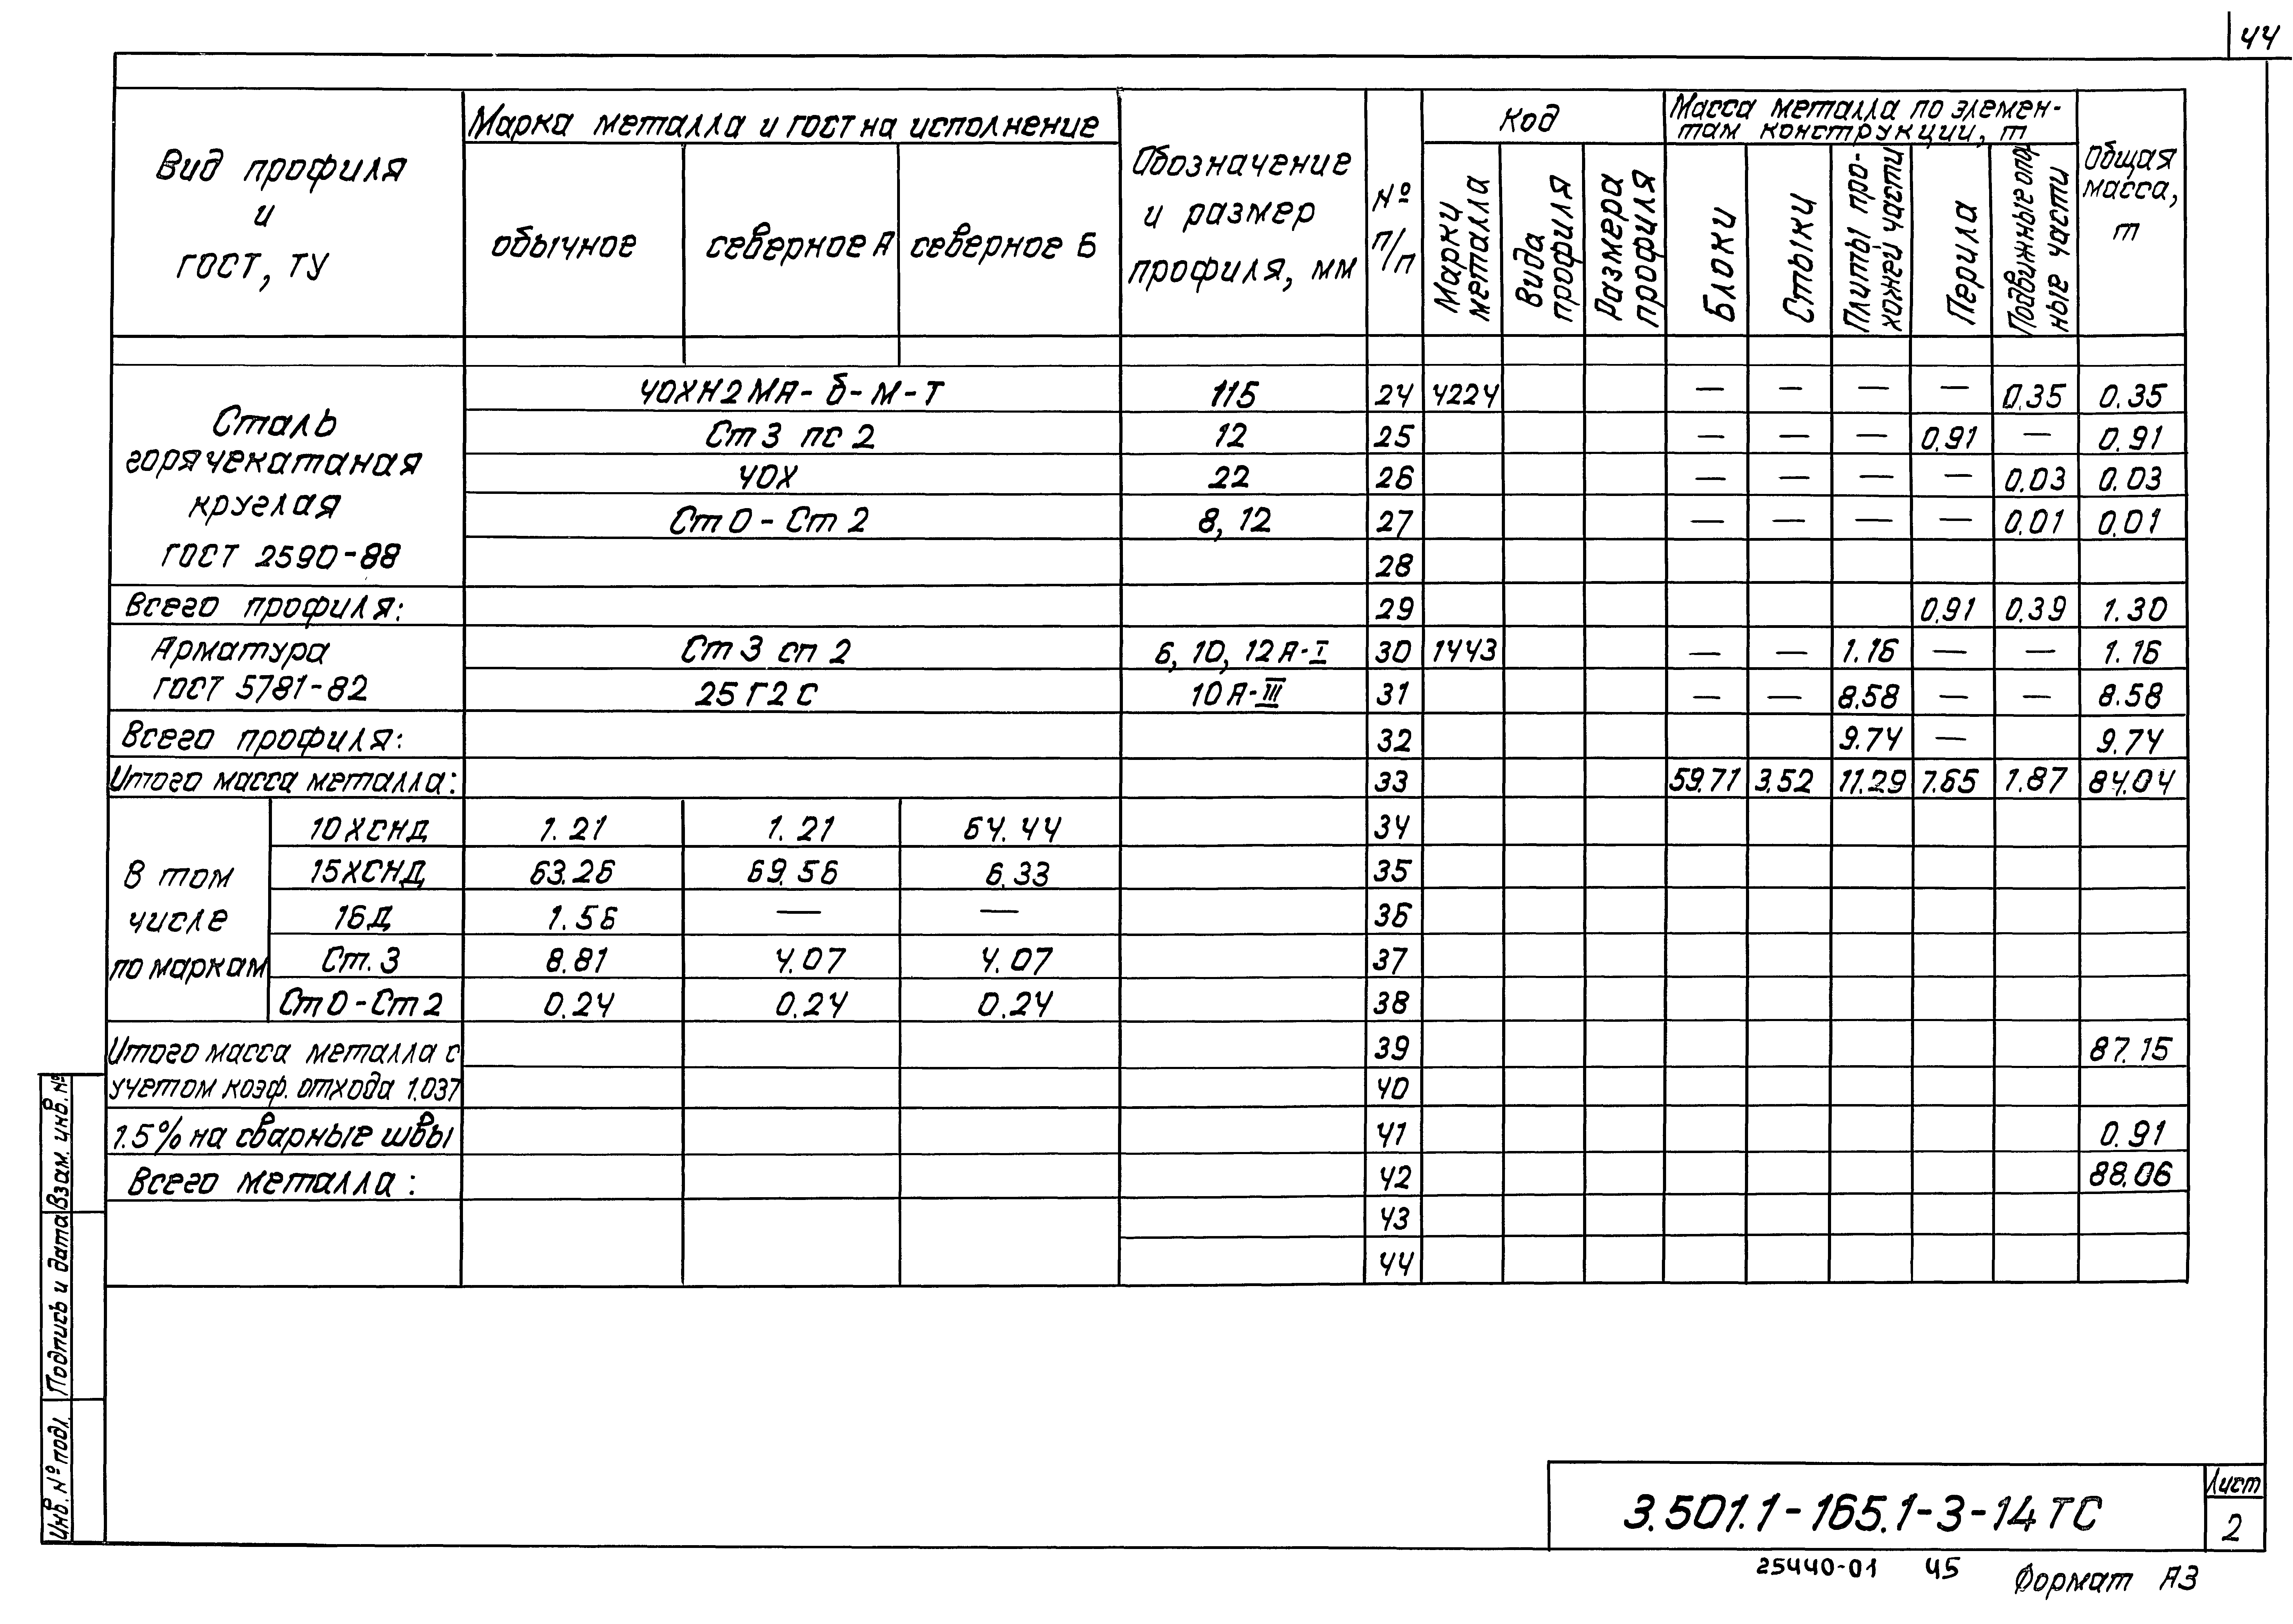 44
Вид профиля
и
ГОСТ, ТУ
Марка металла и ГОСТ на исполнение
обычное
северное А
северное Б
Обозначение
и размер
профиля, мм
№
п/п
Код
Марки
металла
Вида
профиля
Размера
профиля
Масса металла по элемен-
там конструкции, т
Блоки
Стыки
Плиты про-
хожей части
Перила
Подвижные опор
ные части
Общая
масса,
т
Сталь
горячекатаная
круглая
ГОСТ 2590-88
40ХН2МА-б-М-Т 115 24 4224 — — — — 0.35 0.35
Ст3 пс 2 12 25 — — — 0.91 — 0.91
40Х 22 26 — — — — 0.03 0.03
Ст0-Ст2 8, 12 27 — — — — 0.01 0.01
28
Всего профиля: 29 0.91 0.39 1.30
Арматура
ГОСТ 5781-82
Ст3 сп 2 6, 10, 12А-I 30 1443 — — 1.16 — — 1.16
25Г2С 10А-III 31 — — 8.58 — — 8.58
Всего профиля: 32 9.74 — 9.74
Итого масса металла: 33 59.71 3.52 11.29 7.65 1.87 84.04
В том
числе
по маркам
10ХСНД 1.21 1.21 64.44 34
15ХСНД 63.26 69.56 6.33 35
16Д 1.56 — — 36
Ст.3 8.81 4.07 4.07 37
Ст0-Ст2 0.24 0.24 0.24 38
Итого масса металла с 39 87.15
учетом коэф. отхода 1.037 40
1.5% на сварные швы 41 0.91
Всего металла: 42 88.06
43
44
Инв. № подл.
Подпись и дата
Взам. инв. №
3.501.1-165.1-3-14ТС
Лист
2
25440-01 45 Формат А3